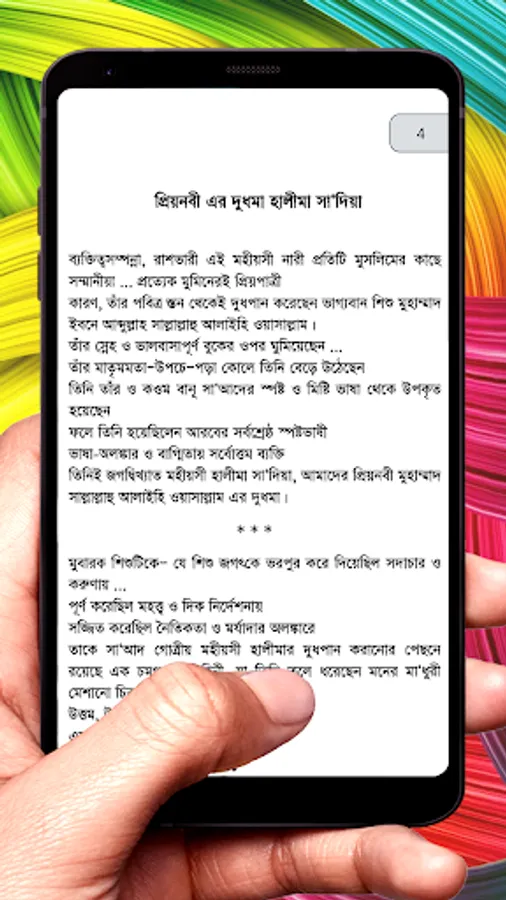 4
প্রিয়নবী এর দুধমা হালীমা সা'দিয়া
ব্যক্তিত্বসম্পন্না, রাশভারী এই মহীয়সী নারী প্রতিটি মুসলিমের কাছে
সম্মানীয়া ... প্রত্যেক মুমিনেরই প্রিয়পাত্রী
কারণ, তাঁর পবিত্র স্তন থেকেই দুধপান করেছেন ভাগ্যবান শিশু মুহাম্মাদ
ইবনে আব্দুল্লাহ সাল্লাল্লাহু আলাইহি ওয়াসাল্লাম।
তাঁর স্নেহ ও ভালবাসাপূর্ণ বুকের ওপর ঘুমিয়েছেন ...
তাঁর মাতৃমমতা-উপচে-পড়া কোলে তিনি বেড়ে উঠেছেন
তিনি তাঁর ও কওম বানূ সা'আদের স্পষ্ট ও মিষ্টি ভাষা থেকে উপকৃত
হয়েছেন
ফলে তিনি হয়েছিলেন আরবের সর্বশ্রেষ্ঠ স্পষ্টভাষী
ভাষা-অলঙ্কার ও বাগ্মিতায় সর্বোত্তম ব্যক্তি
তিনিই জগদ্বিখ্যাত মহীয়সী হালীমা সা'দিয়া, আমাদের প্রিয়নবী মুহাম্মাদ
সাল্লাল্লাহু আলাইহি ওয়াসাল্লাম এর দুধমা।
* * *
মুবারক শিশুটিকে- যে শিশু জগৎকে ভরপুর করে দিয়েছিল সদাচার ও
করুণায় ...
পূর্ণ করেছিল মহত্ত্ব ও দিক নির্দেশনায়
সজ্জিত করেছিল নৈতিকতা ও মর্যাদার অলঙ্কারে
তাকে সা'আদ গোত্রীয় মহীয়সী হালীমার দুধপান করানোর পেছনে
রয়েছে এক ধরেছেন মনের মা'ধুরী
মেশানো
উত্তম,